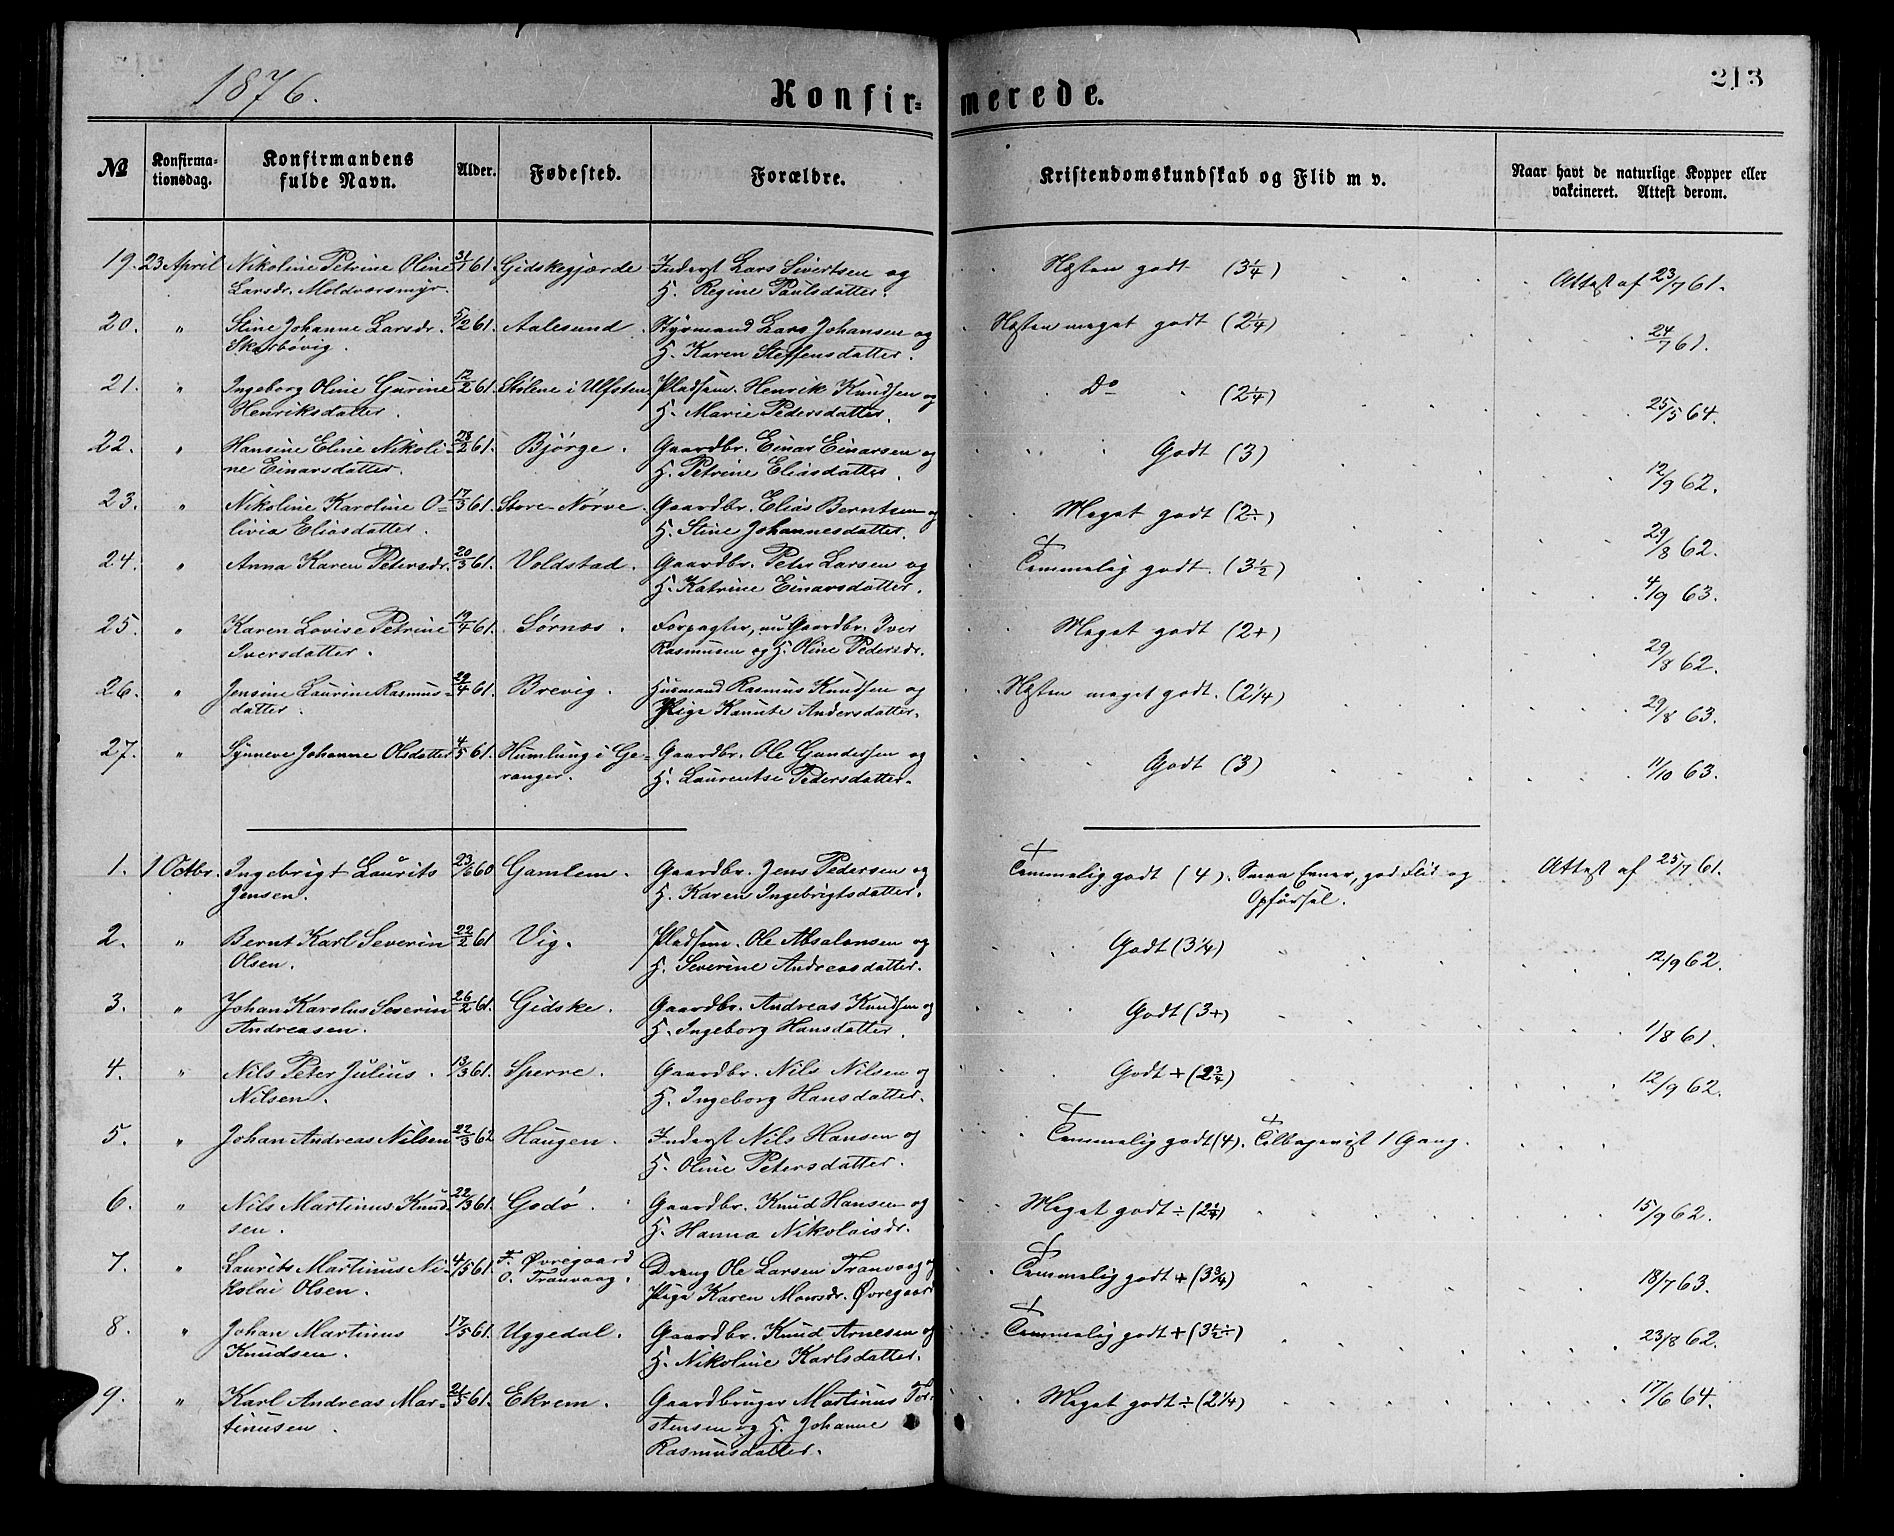 1876.
Konfir=
merede.
213
№ Konfirma-tionsdag. Konfirmandens fulde Navn. Alder. Fødested. Forældre. Kristendomskundskab og Flid m v. Naar havt de naturlige Kopper eller vakcineret. Attest derom.
19. 23 April Nikoline Petrine Oline 31/1 61. Gidskegjærde Inderst Lars Sivertsen og Næsten godt (3 1/4) Attest af 23/7 61.
Larsdr. Moldværsmyr. H. Regine Paulsdatter.
20. " Stine Johanne Larsdr. 5/2 61. Aalesund. Styrmand Lars Johansen og Næsten meget godt (2 1/4) 24/7 61.
Skarbövig. H. Karen Steffensdatter.
21. " Ingeborg Oline Gurine 12/2 61. Stølene i Ulfsten Pladsm. Henrik Knudsen og Do (2 1/4) 25/5 64.
Henriksdatter. H. Marie Pedersdatter.
22. " Hansine Eline Nikoli- 28/2 61. Bjørge. Gaardbr. Einar Einarsen og Godt (3) 12/9 62.
ne Einarsdatter. H. Petrine Eliasdatter.
23. " Nikoline Karoline O- 17/3 61. Store-Nørve. Gaardbr. Elias Berntsen og Meget godt (2÷) 29/8 62.
livia Eliasdatter. H. Stine Johannesdatter.
24. " Anna Karen Petersdr. 20/3 61. Voldstad. Gaardbr. Peter Larsen og Temmelig godt. (3 1/2) 4/9 63.
H. Katrine Einarsdatter.
25. " Karen Lovise Petrine 19/4 61. Sørnæs. Forpagter, nu Gaardbr. Iver Meget godt (2+) 29/8 62.
Iversdatter. Rasmusen og H. Oline Pedersdr.
26. " Jensine Laurine Rasmus- 29/4 61. Brevig. Husmand Rasmus Knudsen og Næsten meget godt. (2 1/4) 29/8 63.
datter. Pige Kanute Andersdatter.
27. " Synneve Johanne Olsdatter 4/5 61. Humlung i Ge- Gaardbr. Ole Gundersen og Godt (3) 11/10 63.
ranger. H. Laurentse Pedersdatter.
1. 1 Octbr. Ingebrigt Laurits 23/6 60 Gamlem. Gaardbr. Jens Pedersen og Temmelig godt (4). Smaa Evner, god Flid og Attest af 25/7 61.
Jensen. H. Karen Ingebrigtsdatter. Opførsel.
2. " Bernt Karl Severin 22/2 61 Vig. Pladsm. Ole Absalonsen og Godt (3 1/4) 12/9 62.
Olsen. H. Severine Andreasdatter.
3. " Johan Karolus Severin 26/2 61. Gidske. Gaardbr. Andreas Knudsen og Godt (3+) 1/8 61.
Andreasen. H. Ingeborg Hansdatter.
4. " Nils Peter Julius 13/3 61. Sperre. Gaardbr. Nils Nilsen og Godt + (2 3/4) 12/9 62.
Nilsen. H. Ingeborg Hansdatter.
5. " Johan Andreas Nilsen 22/3 62 Haugen. Inderst Nils Hansen og Temmelig godt (4). Tilbagevist 1 Gang.
H. Oline Petersdatter.
6. " Nils Martinus Knud- 22/3 61. Godø. Gaardbr. Knud Hansen og Meget godt ÷ (2 1/4) 15/9 62.
sen. H. Hanna Nikolaisdr.
7. " Laurits Martinus Ni- 4/5 61. F. Øvregaard Dreng Ole Larsen Tranvaag og Temmelig godt + (3 3/4) 18/7 63.
kolai Olsen. O. Tranvaag. Pige Karen Monsdr. Øvregaar
8. " Johan Martinus 17/5 61. Uggedal. Gaardbr. Knud Arnesen og Temmelig godt + (3 1/2 ÷) 23/8 62.
Knudsen. H. Nikoline Karlsdatter.
9. " Karl Andreas Mar- 21/5 61. Ekrem. Gaardbruger Martinus Tor- Meget godt ÷ (2 1/4) 17/6 64.
tinusen. stensen og H. Johanne
Rasmusdatter.